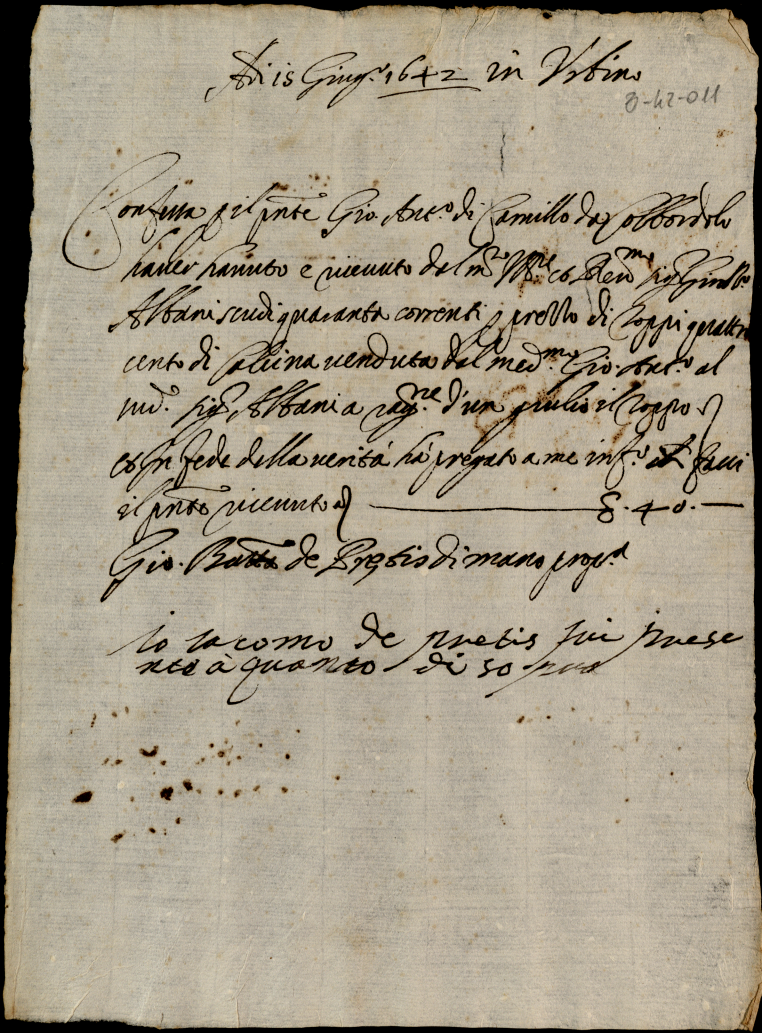 Adi 15 Giug.o 1642 in Urbino
3-42-011
Confessa p il pnte Gio. Ant.o di Camillo da Colbordolo
haver havuto e ricevuto dal m.to Ill.re et Rev.mo sig.r
Albani scudi quaranta correnti p prezzo di coppi quattro
cento di Calcina venduta dal med.mo Gio. Ant.o al
sud.o sig.r Albani a rag.ne d'un giulio il coppo
et in fede della verità hà pregato a me inf.o facci
il pnte ricevuto 40.
Gio. Batta de Pretis di mano prop.a
Io Iacomo de pretis fui prese
nte à quanto di sopra